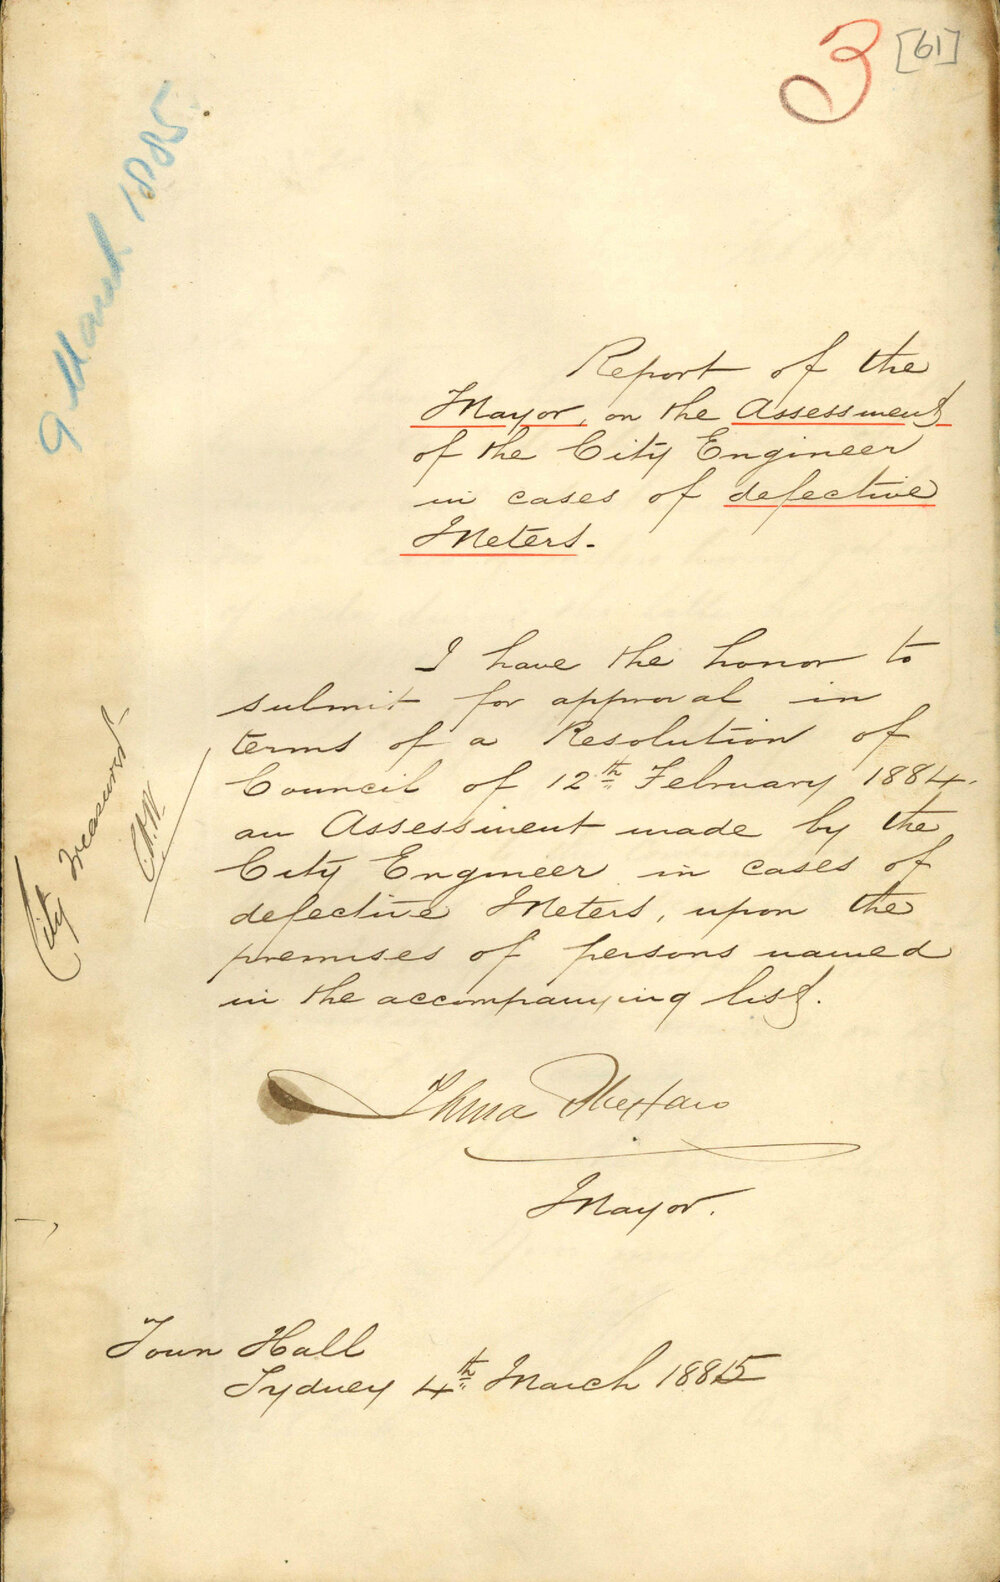 3 [61]
9 March 1885
Report of the
Mayor, on the Assessment
of the City Engineer
in cases of defective
Meters.
I have the honor to
submit for approval in
terms of a Resolution of
Council of 12th February 1884.
an Assessment made by the
City Engineer in cases of
defective Meters, upon the
premises of persons named
in the accompanying list.
Mayor.
Town Hall
Sydney 4th March 1885
City Treasurer